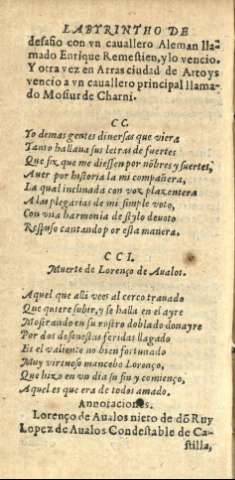 LABYRINTHO DE
desafio con vn cauallero Aleman lla-
mado Enrique Remestien, y lo vencio.
Y otra vez en Arras ciudad de Artoys
vencio a vn cauallero principal llama-
do Mosiur de Charni.
CC.
Yo demas gentes diuersas que viera
Tanto hallaua sus letras de fuertes
Que fix que me diessen por nõbres y suertes,
Auer por historia la mi compañera,
La qual inclinada con voz plazentera
A las plegarias de mi simple voto,
Con vna harmonia de stylo deuoto
Respuso cantando por esta manera.
CCI.
Muerte de Lorenço de Aualos.
Aquel que alli vees al cerco trauado
Que quiere subir, y se halla en el ayre
Mostrando en su rostro doblado donayre
Por dos desonestas feridas llagado
Es el valiente no bien fortunado
Muy virtuoso mancebo Lorenço,
Que hizo en vn dia su fin y comienço,
Aquel es que era de todos amado.
Annotaciones.
Lorenço de Aualos nieto de dõ Ruy
Lopez de Aualos Condestable de Ca-
stilla,